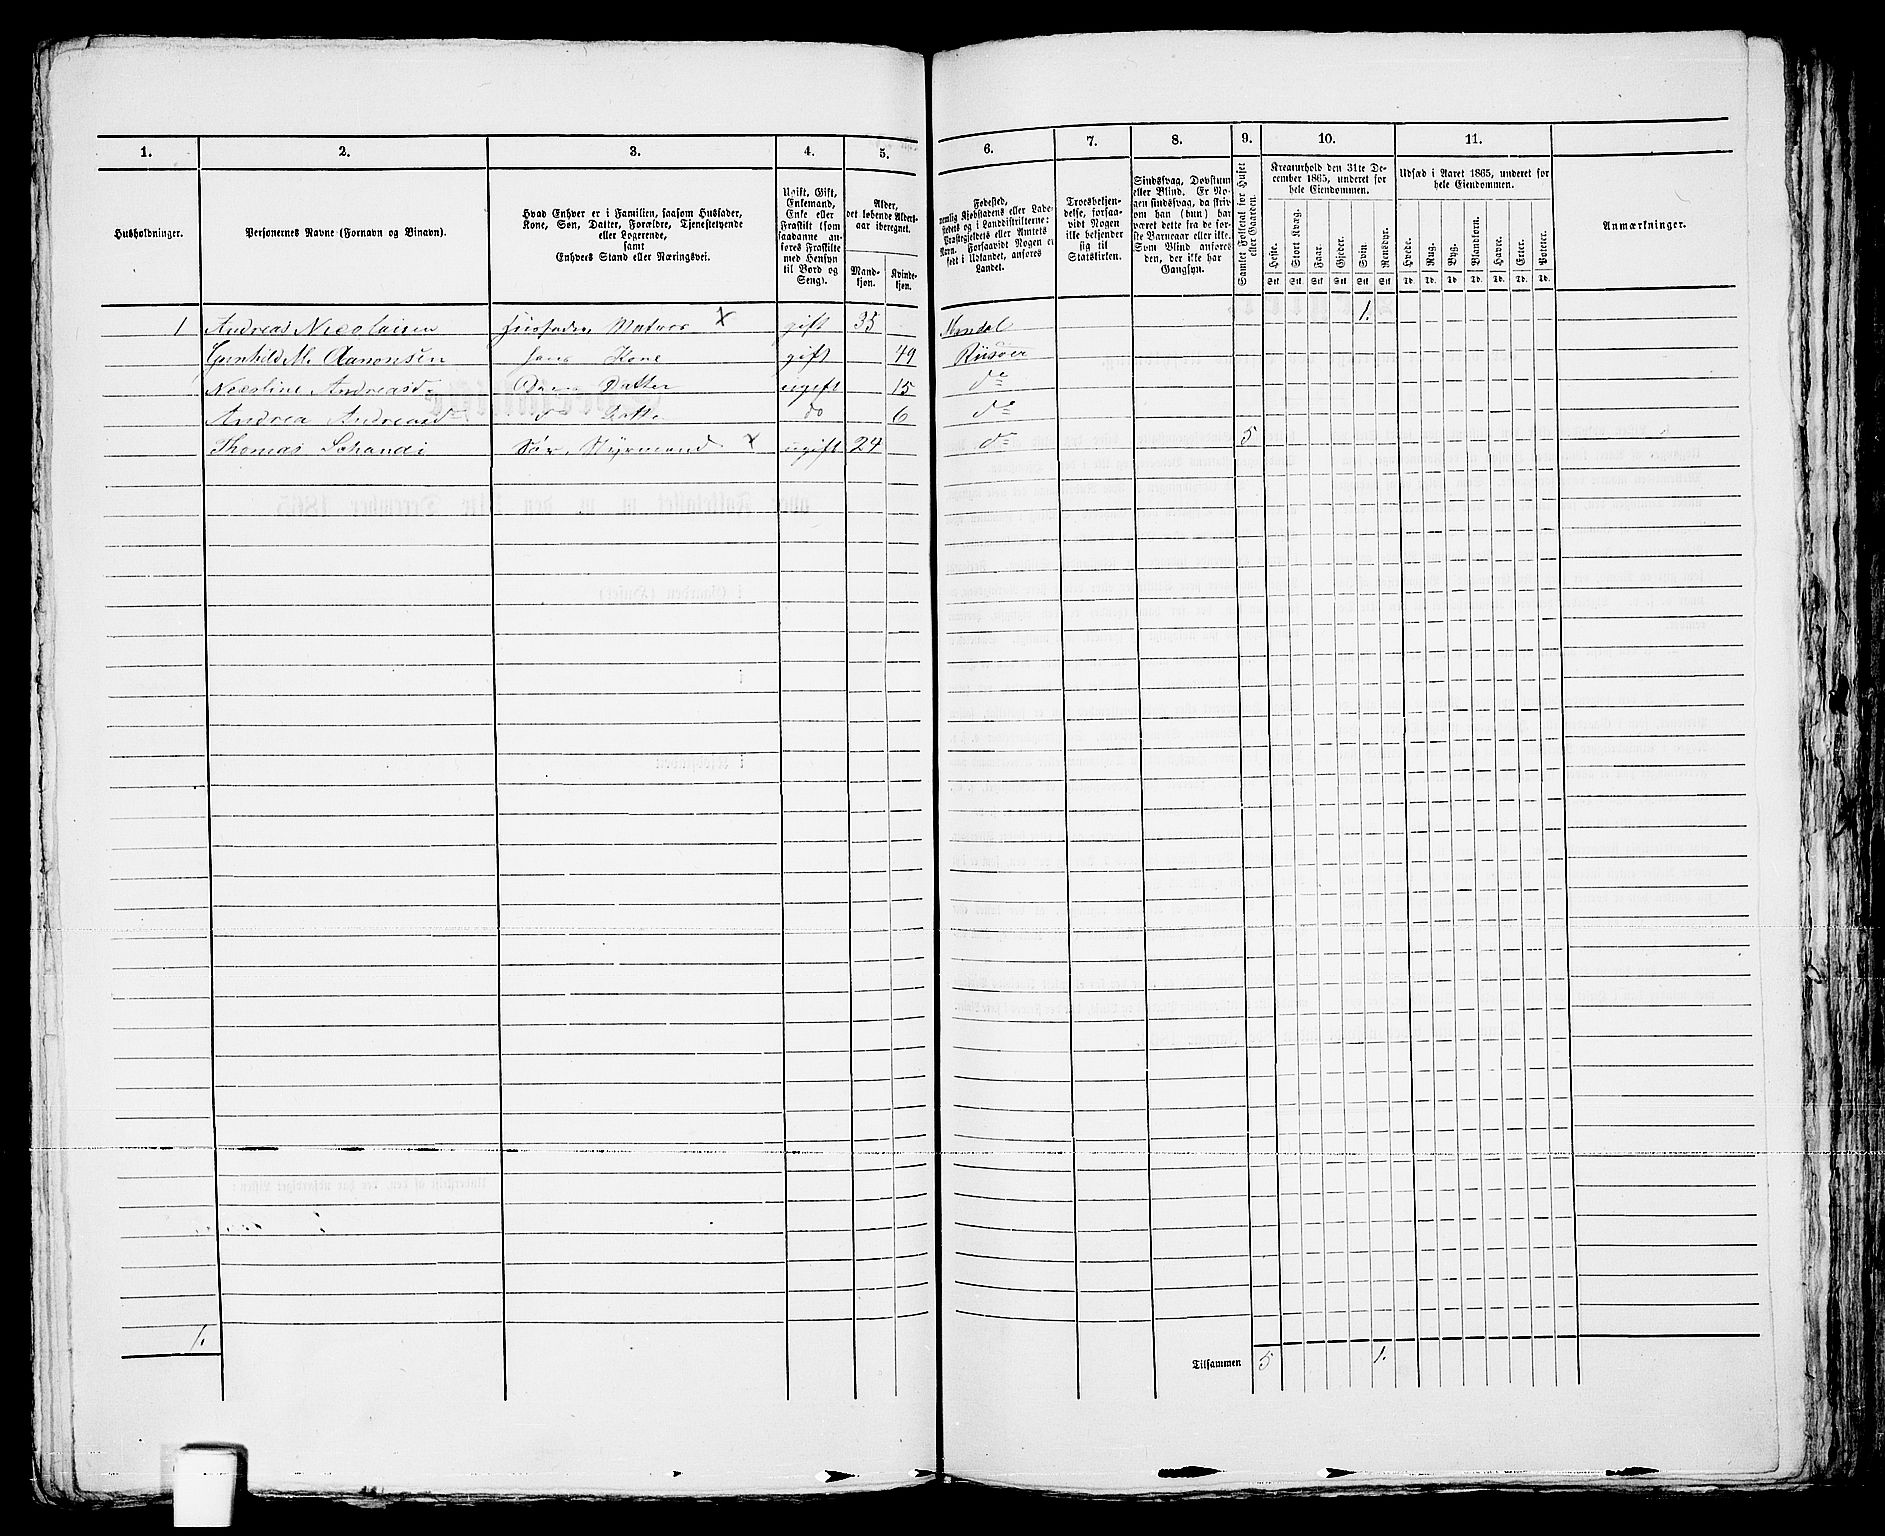 1. 2. 3. 4. 5. 6. 7. 8. 9. 10. 11.
Husholdninger.
Personernes Navne (Fornavn og Binavn).
Hvad Enhver er i Familien, saasom Husfader,
Kone, Søn, Datter, Forældre, Tjenestetyende
eller Logerende,
samt
Enhvers Stand eller Næringsvei.
Ugift, Gift,
Enkemand,
Enke eller
Fraskilt (som
saadanne an-
føres Fraskilte
med Hensyn
til Bord og
Seng).
Alder,
det løbende Alders-
aar iberegnet.
Mand-
kjøn.
Kvinde-
kjøn.
Fødested,
nemlig Kjøbstadens eller Lade-
stedets og i Landdistrikterne:
Præstegjeldets eller Amtets
Navn. Forsaavidt Nogen er
født i Udlandet, anføres
Landet.
Troesbekjen-
delse, forsaa-
vidt Nogen
ikke bekjender
sig til
Statskirken.
Sindssvag, Døvstum
eller Blind. Er No-
gen sindssvag, da skriv
om han (hun) har
været dette fra de før-
ste Barneaar eller ikke.
Som Blind anføres
den, der ikke har
Gangsyn.
Samlet Folketal for Huset
eller Gaarden.
Kreaturhold den 31te De-
cember 1865, underet for
hele Eiendommen.
Heste. Stort Kvæg. Faar. Gjeder. Svin. Rensdyr.
Stk Stk Stk Stk Stk Stk
Udsæd i Aaret 1865, underet for
hele Eiendommen.
Hvede. Rug. Byg. Blandkorn. Havre. Erter. Poteter.
Td. Td. Td. Td. Td. Td. Td.
Anmærkninger.
1 Andreas Nicolaisen Husfader, Matros X gift 35 Mandal 1.
Gunhild M. Aanonsen hans Kone gift 49 Riisøer
Nicoline Andreasd. Datter ugift 15 do
Andrea Andreasd. do Datter do 6 do
Thomas Schandi Styrmand X ugift 24 do 5
1.
Tilsammen 5 1.